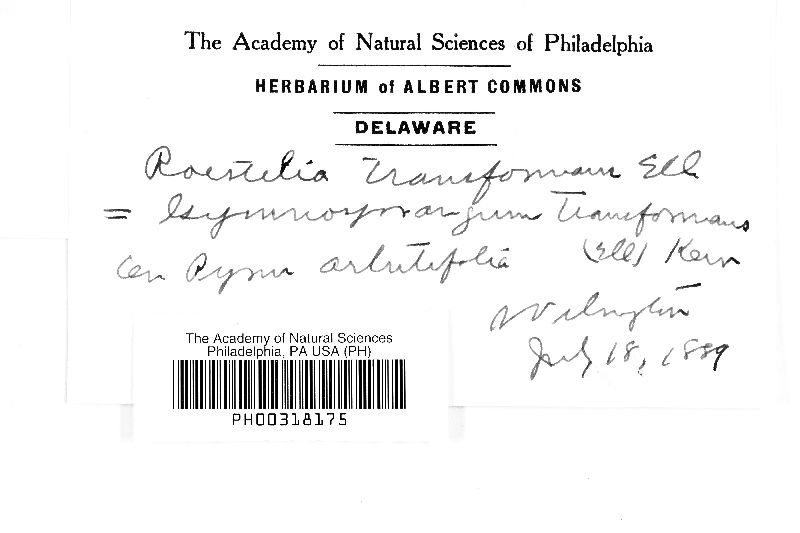 The Academy of Natural Sciences of Philadelphia
HERBARIUM of ALBERT COMMONS
DELAWARE
Roestelia transformans Ell
= Gymnosporangium transformans
on Pyrus arbutifolia (Ell) Kern
Wilmington
July 18, 1889
The Academy of Natural Sciences
Philadelphia, PA USA (PH)
PH00318175